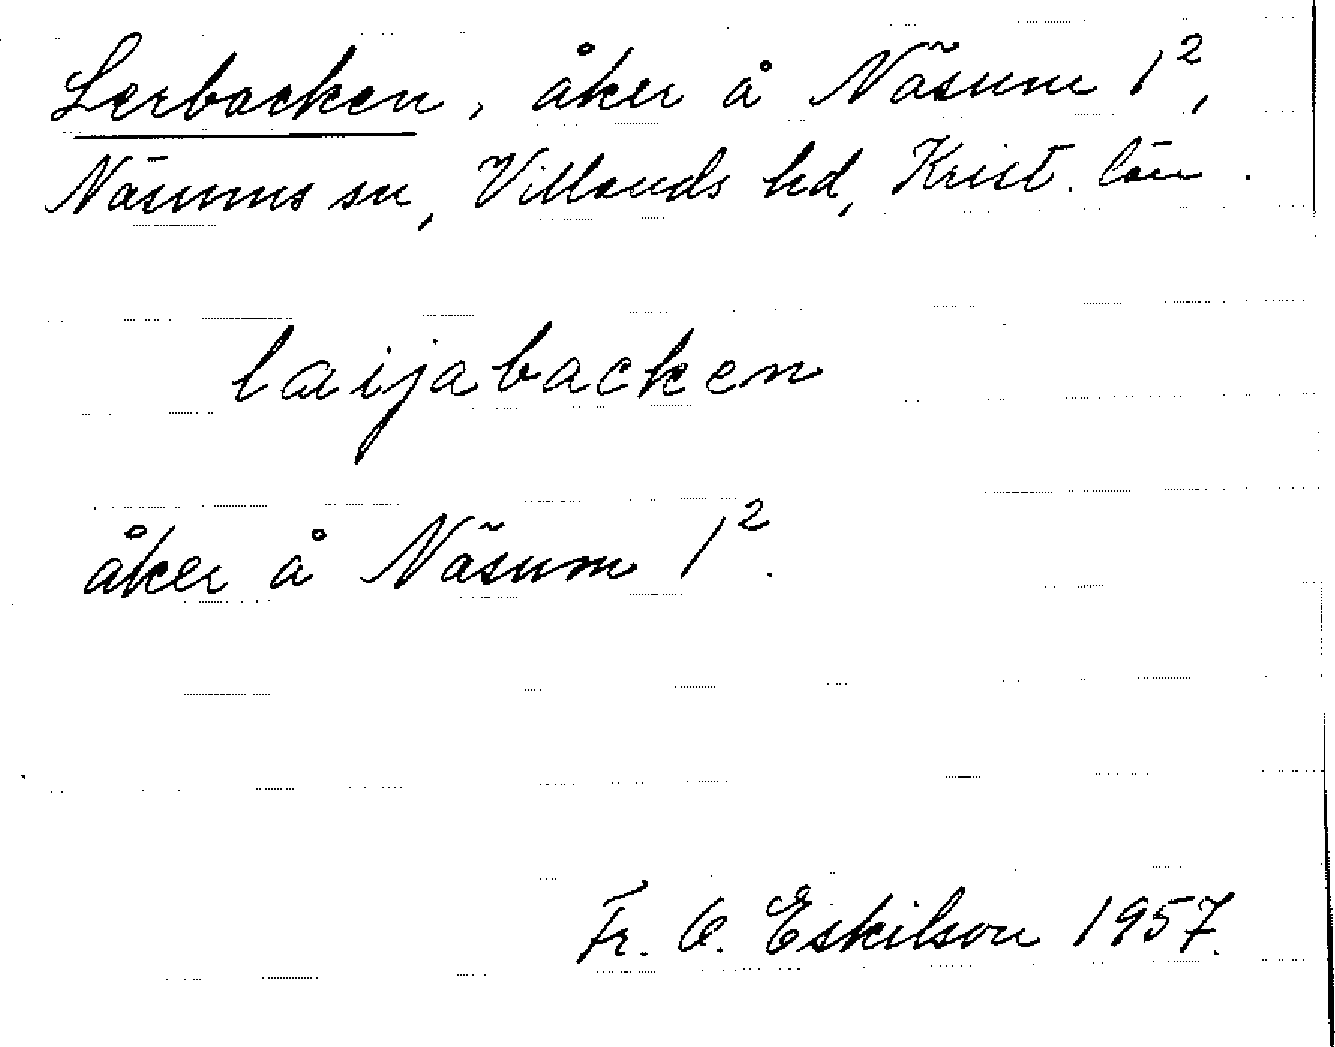 Lerbacken, åker å Näsum 1²,
Näsums sn, Villands hd, Krist. län.
laijabacken
åker å Näsum 1².
Fr. O. Eskilson 1957.